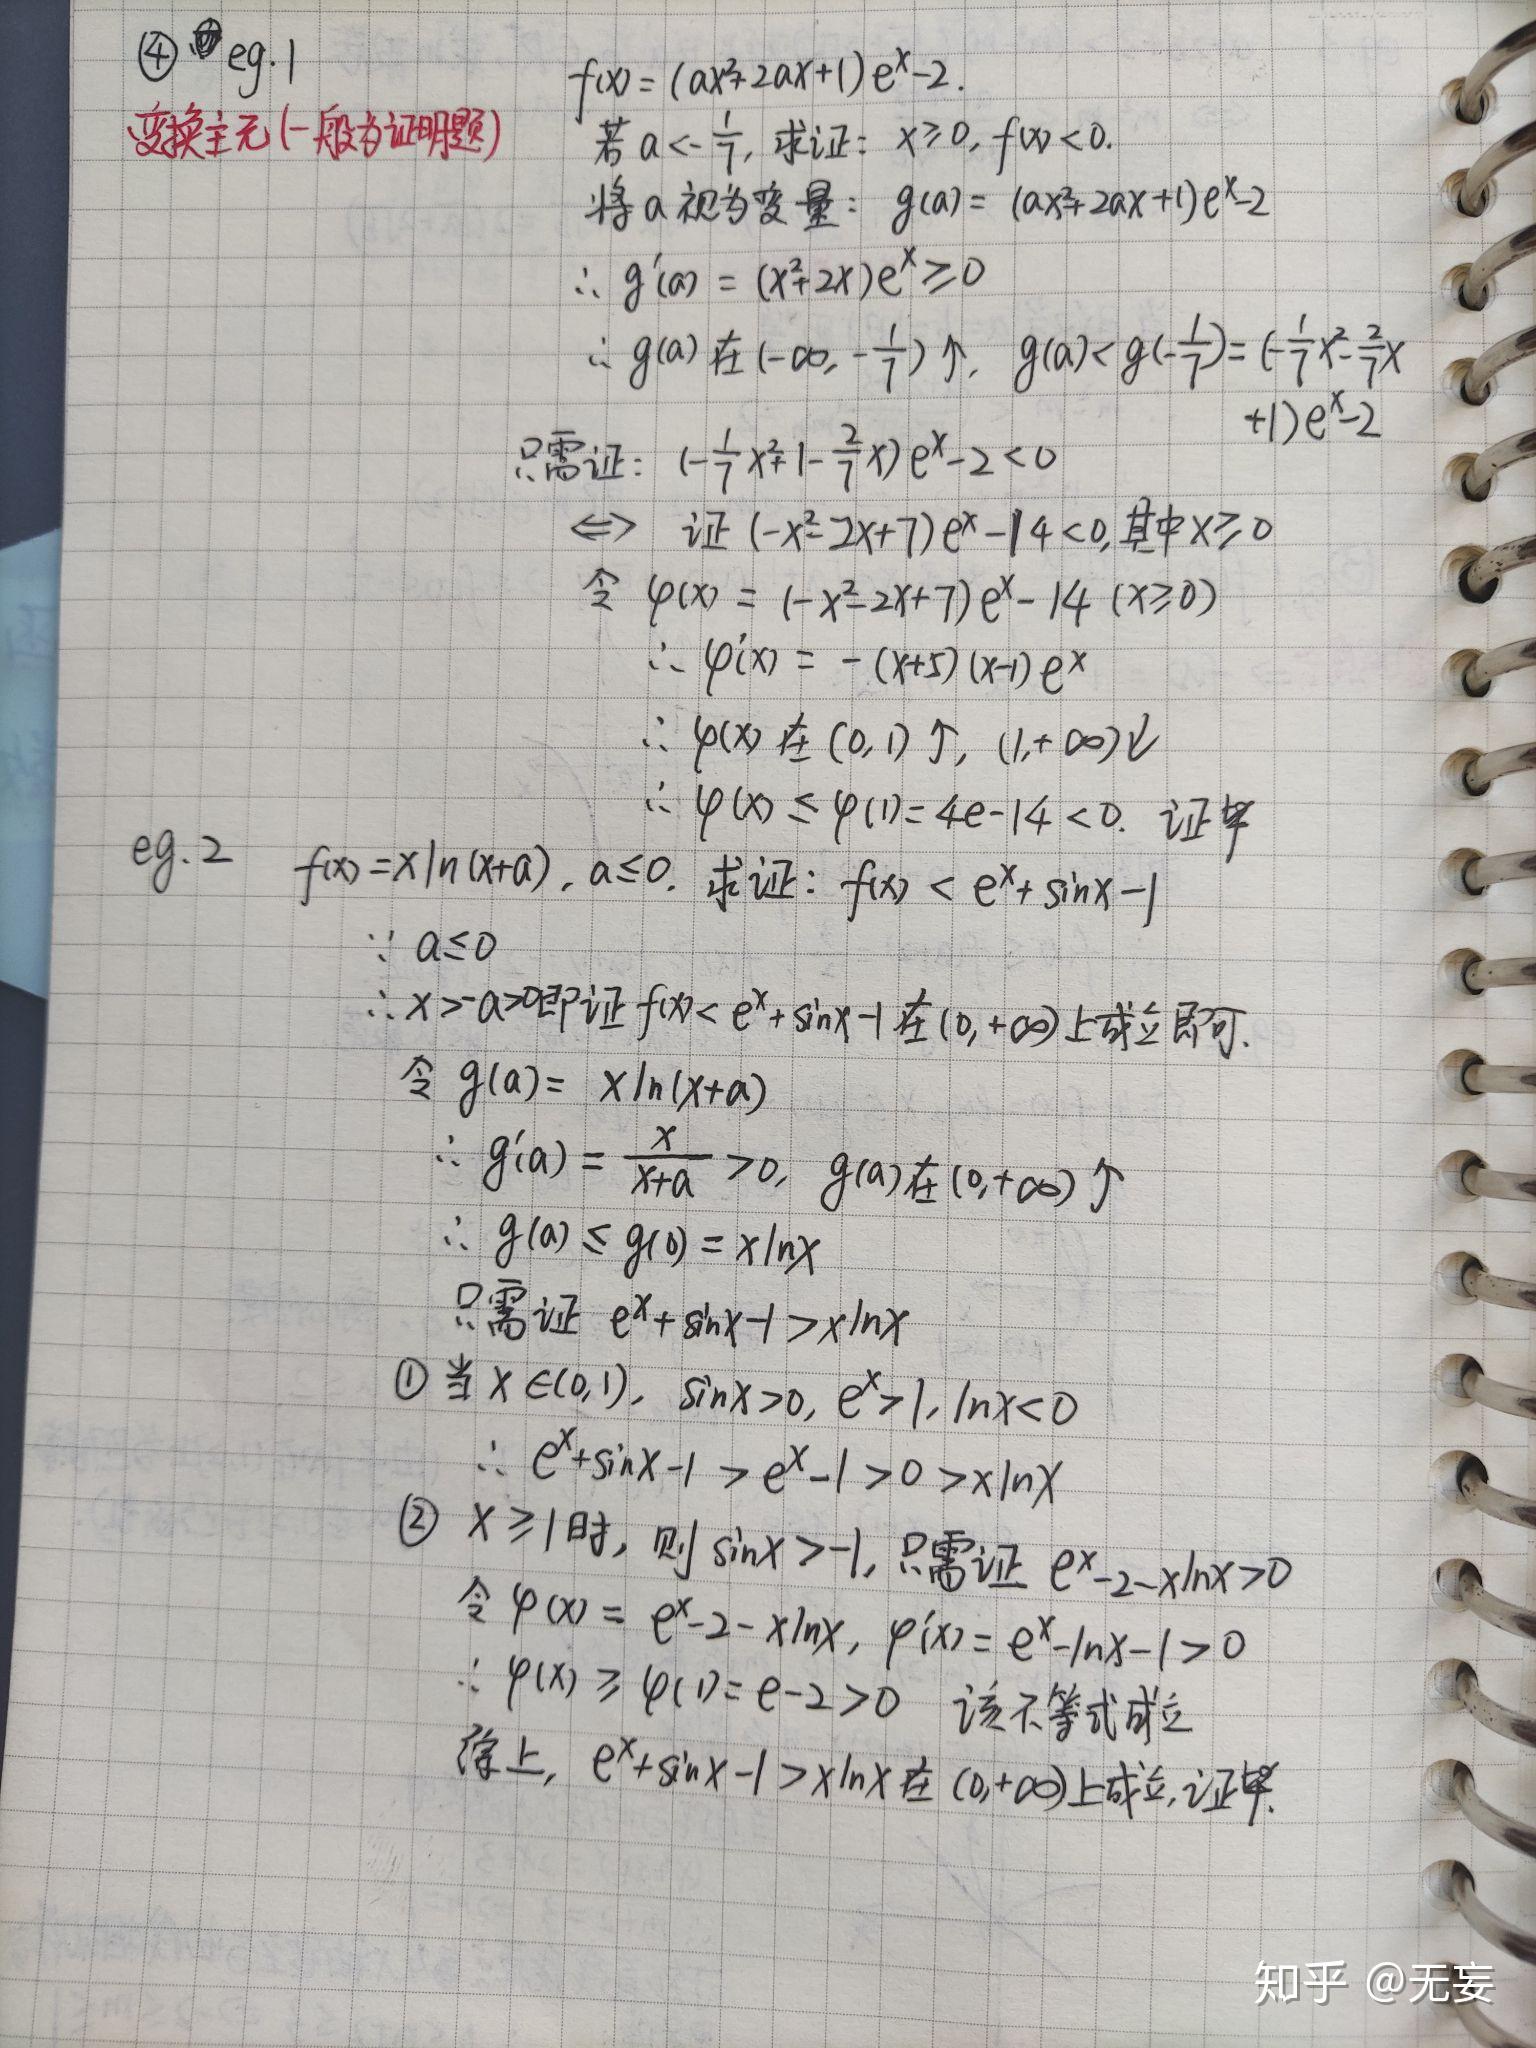 ④ eg.1
变换主元(一般为证明题)
f(x)=(ax²+2ax+1)eˣ-2.
若a<-1/7, 求证: x≥0, f(x)<0.
将a视为变量: g(a)=(ax²+2ax+1)eˣ-2
∴ g'(a)=(x²+2x)eˣ≥0
∴ g(a)在(-∞,-1/7)↑, g(a)<g(-1/7)=(-1/7x²-2/7x
+1)eˣ-2
只需证: (-1/7x²+1-2/7x)eˣ-2<0
⇔ 证(-x²-2x+7)eˣ-14<0,其中x≥0
令 φ(x)=(-x²-2x+7)eˣ-14 (x≥0)
∴ φ'(x)=-(x+5)(x-1)eˣ
∴ φ(x)在(0,1)↑, (1,+∞)↓
∴ φ(x)≤φ(1)=4e-14<0. 证毕
eg.2 f(x)=xln(x+a), a≤0. 求证: f(x)<eˣ+sinx-1
∵ a≤0
∴ x>-a>0即证f(x)<eˣ+sinx-1在(0,+∞)上成立即可.
令 g(a)= xln(x+a)
∴ g'(a)=x/(x+a)>0, g(a)在(0,+∞)↑
∴ g(a)≤g(0)=xlnx
只需证 eˣ+sinx-1>xlnx
① 当x∈(0,1), sinx>0, eˣ>1, lnx<0
∴ eˣ+sinx-1>eˣ-1>0>xlnx
② x≥1时, 则sinx>-1, 只需证 eˣ-2-xlnx>0
令φ(x)=eˣ-2-xlnx, φ'(x)=eˣ-lnx-1>0
∴ φ(x)≥φ(1)=e-2>0 该不等式成立
综上, eˣ+sinx-1>xlnx在(0,+∞)上成立,证毕.
知乎 @无妄